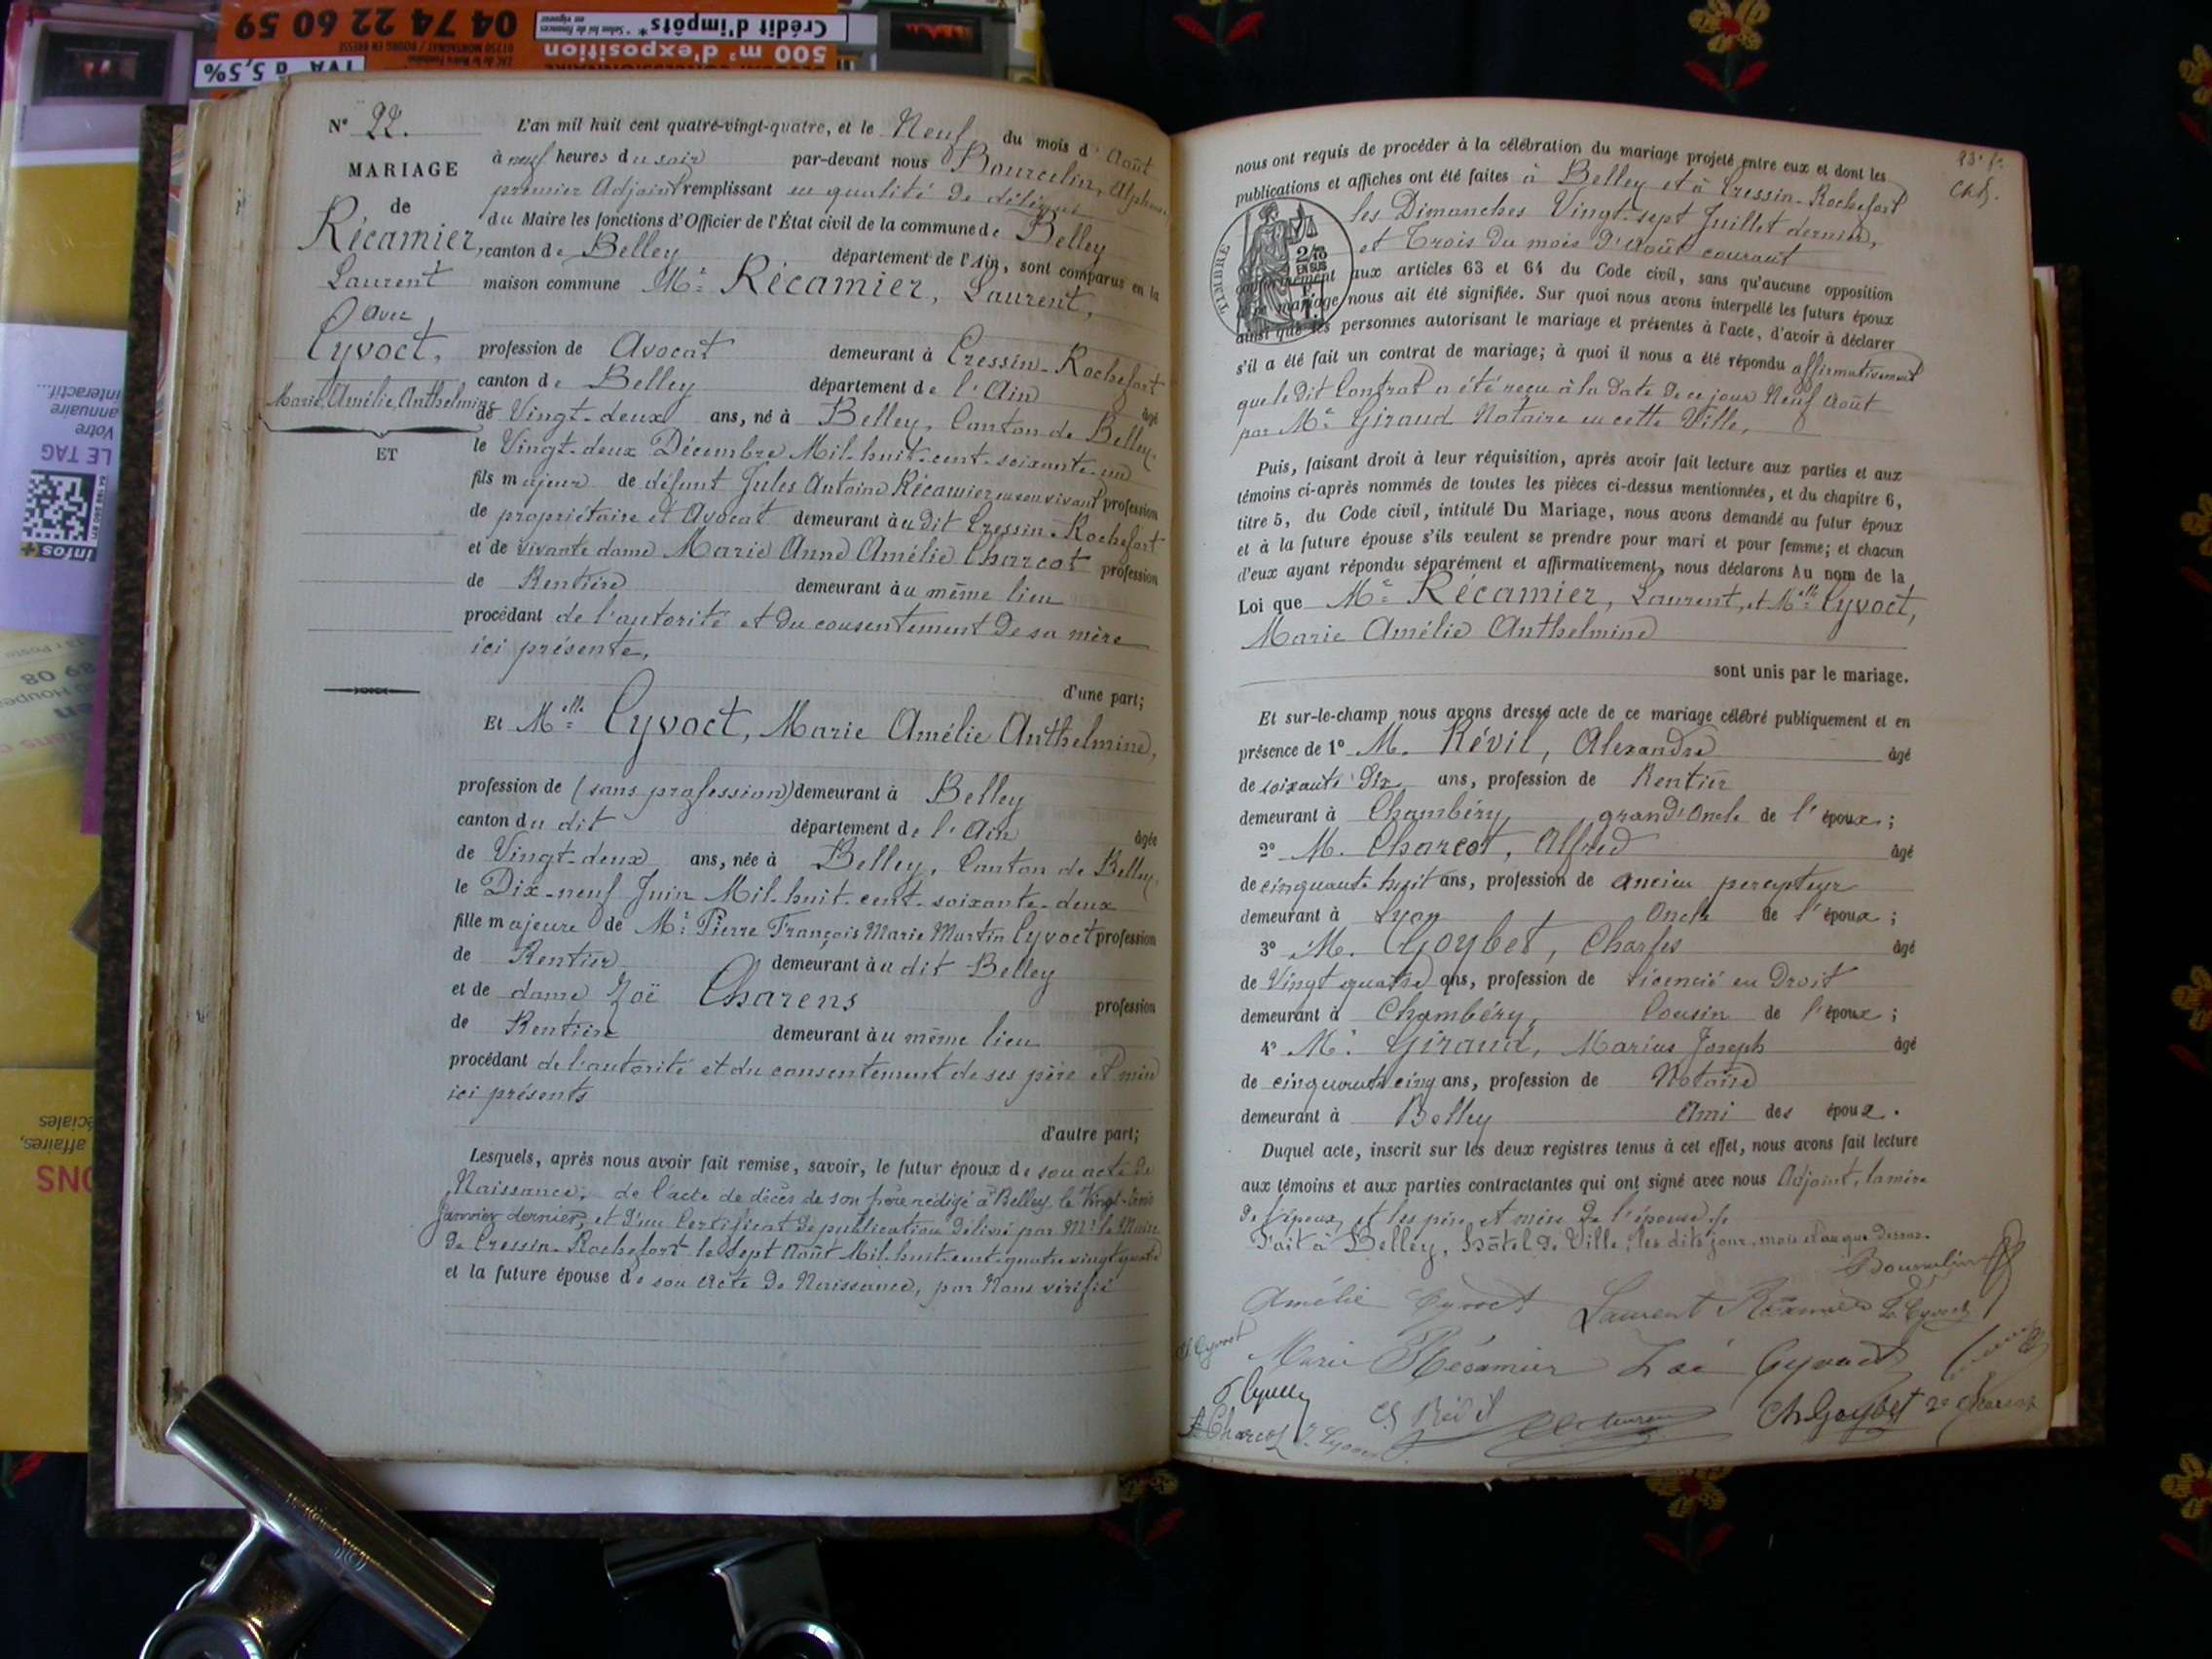 N° 22.
MARIAGE
de
Récamier,
Laurent
Avec
Cyvoct,
Marie, Amélie, Anthelmine
ET
L'an mil huit cent quatre-vingt-quatre, et le Neuf du mois d'Août
à neuf heures du soir par-devant nous Bourcelin, Alphonse
premier Adjoint remplissant en qualité de délégué
du Maire les fonctions d'Officier de l'État civil de la commune de Belley
canton de Belley département de l'Ain, sont comparus en la
maison commune Mr Récamier, Laurent,
profession de Avocat demeurant à Cressin-Rochefort
canton de Belley département de l'Ain âgé
de Vingt-deux ans, né à Belley, Canton de Belley,
le Vingt-deux Décembre Mil-huit-cent-soixante-un
fils majeur de défunt Jules Antoine Récamier en son vivant profession
de propriétaire et Avocat demeurant au dit Cressin-Rochefort
et de vivante dame Marie Anne Amélie Charcot profession
de Rentière demeurant au même lieu
procédant de l'autorité et du consentement de sa mère
ici présente,
d'une part;
Et Melle Cyvoct, Marie Amélie Anthelmine,
profession de (sans profession) demeurant à Belley
canton du dit département de l'Ain âgée
de Vingt-deux ans, née à Belley, Canton de Belley,
le Dix-neuf Juin Mil-huit-cent-soixante-deux
fille majeure de Mr Pierre François Marie Martin Cyvoct profession
de Rentier demeurant au dit Belley
et de dame Zoë Charens profession
de Rentière demeurant au même lieu
procédant de l'autorité et du consentement de ses père et mère
ici présents
d'autre part;
Lesquels, après nous avoir fait remise, savoir, le futur époux de son acte de
Naissance; de l'acte de décès de son père rédigé à Belley le Vingt-trois
Janvier dernier, et d'un Certificat de publication délivré par Mr le Maire
de Cressin-Rochefort le Sept Août Mil-huit-cent-quatre-vingt-quatre
et la future épouse de son Acte de Naissance, par Nous vérifié
nous ont requis de procéder à la célébration du mariage projeté entre eux et dont les
publications et affiches ont été faites à Belley et à Cressin-Rochefort
les Dimanches Vingt-sept Juillet dernier,
et Trois du mois d'Août courant
conformément aux articles 63 et 64 du Code civil, sans qu'aucune opposition
mariage nous ait été signifiée. Sur quoi nous avons interpellé les futurs époux
ainsi que les personnes autorisant le mariage et présentes à l'acte, d'avoir à déclarer
s'il a été fait un contrat de mariage; à quoi il nous a été répondu affirmativement
que le dit Contrat a été reçu à la date de ce jour Neuf Août
par Me Giraud Notaire en cette Ville,
TIMBRE
2/10
EN SUS
Puis, faisant droit à leur réquisition, après avoir fait lecture aux parties et aux
témoins ci-après nommés de toutes les pièces ci-dessus mentionnées, et du chapitre 6,
titre 5, du Code civil, intitulé Du Mariage, nous avons demandé au futur époux
et à la future épouse s'ils veulent se prendre pour mari et pour femme; et chacun
d'eux ayant répondu séparément et affirmativement, nous déclarons Au nom de la
Loi que Mr Récamier, Laurent, et Melle Cyvoct,
Marie Amélie Anthelmine
sont unis par le mariage.
Et sur-le-champ nous avons dressé acte de ce mariage célébré publiquement et en
présence de 1° M. Révil, Alexandre âgé
de soixante Dix ans, profession de Rentier
demeurant à Chambéry, grand'Oncle de l'époux;
2° M. Charcot, Alfred âgé
de cinquante huit ans, profession de ancien percepteur
demeurant à Lyon Oncle de l'époux;
3° M. Goybet, Charles âgé
de Vingt quatre ans, profession de Licencié en Droit
demeurant à Chambéry, Cousin de l'époux;
4° Mr Giraud, Marius Joseph âgé
de cinquante cinq ans, profession de Notaire
demeurant à Belley Ami des époux.
Duquel acte, inscrit sur les deux registres tenus à cet effet, nous avons fait lecture
aux témoins et aux parties contractantes qui ont signé avec nous Adjoint, la mère
de l'époux, et les père et mère de l'épouse
Fait à Belley, Hôtel de Ville, les dits jour, mois et an que dessus.
Bourcelin
Amélie Cyvoct Laurent Récamier
Marie Récamier Zoé Cyvoct
Révil Ch. Goybet
Charcot
04 74 22 60 59
Crédit d'impôts*
500 m² d'exposition
TVA à 5,5%
Votre
annuaire
interactif...
LE TAG
infos+